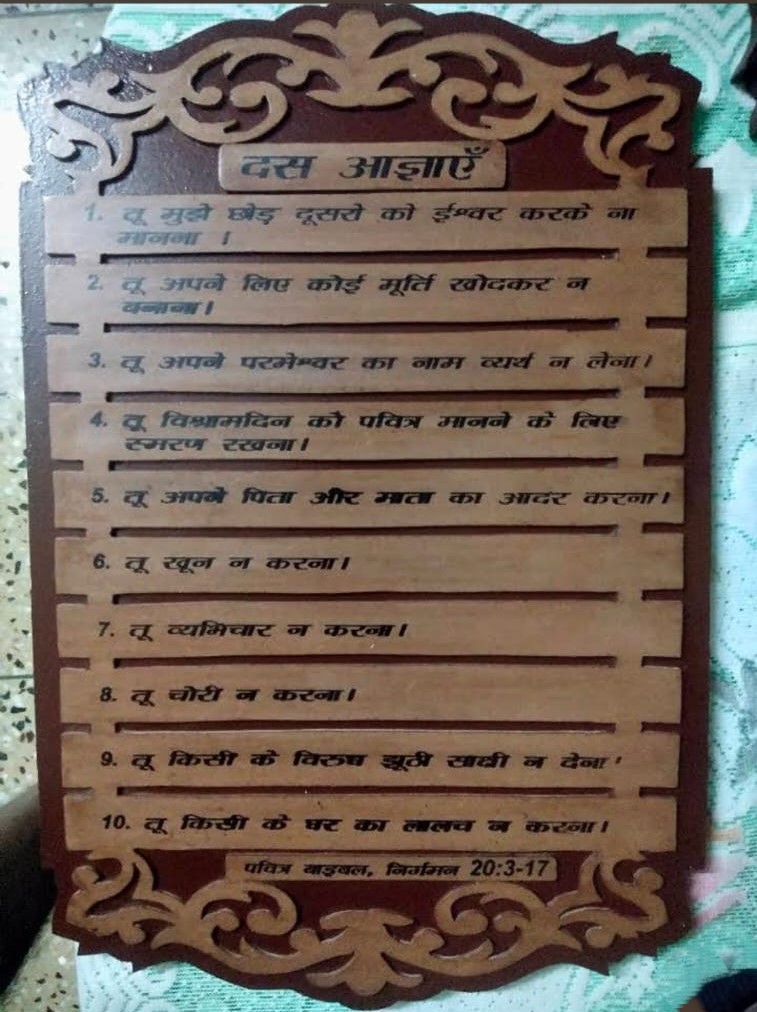 दस आज्ञाएँ
1. तू मुझे छोड़ दूसरो को ईश्वर करके ना
मानना ।
2. तू अपने लिए कोई मूर्ति खोदकर न
बनाना।
3. तू अपने परमेश्वर का नाम व्यर्थ न लेना।
4. तू विश्रामदिन को पवित्र मानने के लिए
स्मरण रखना।
5. तू अपने पिता और माता का आदर करना।
6. तू खून न करना।
7. तू व्यभिचार न करना।
8. तू चोरी न करना।
9. तू किसी के विरुध झूठी साक्षी न देना '
10. तू किसी के घर का लालच न करना।
पवित्र बाइबल, निर्गमन 20:3-17